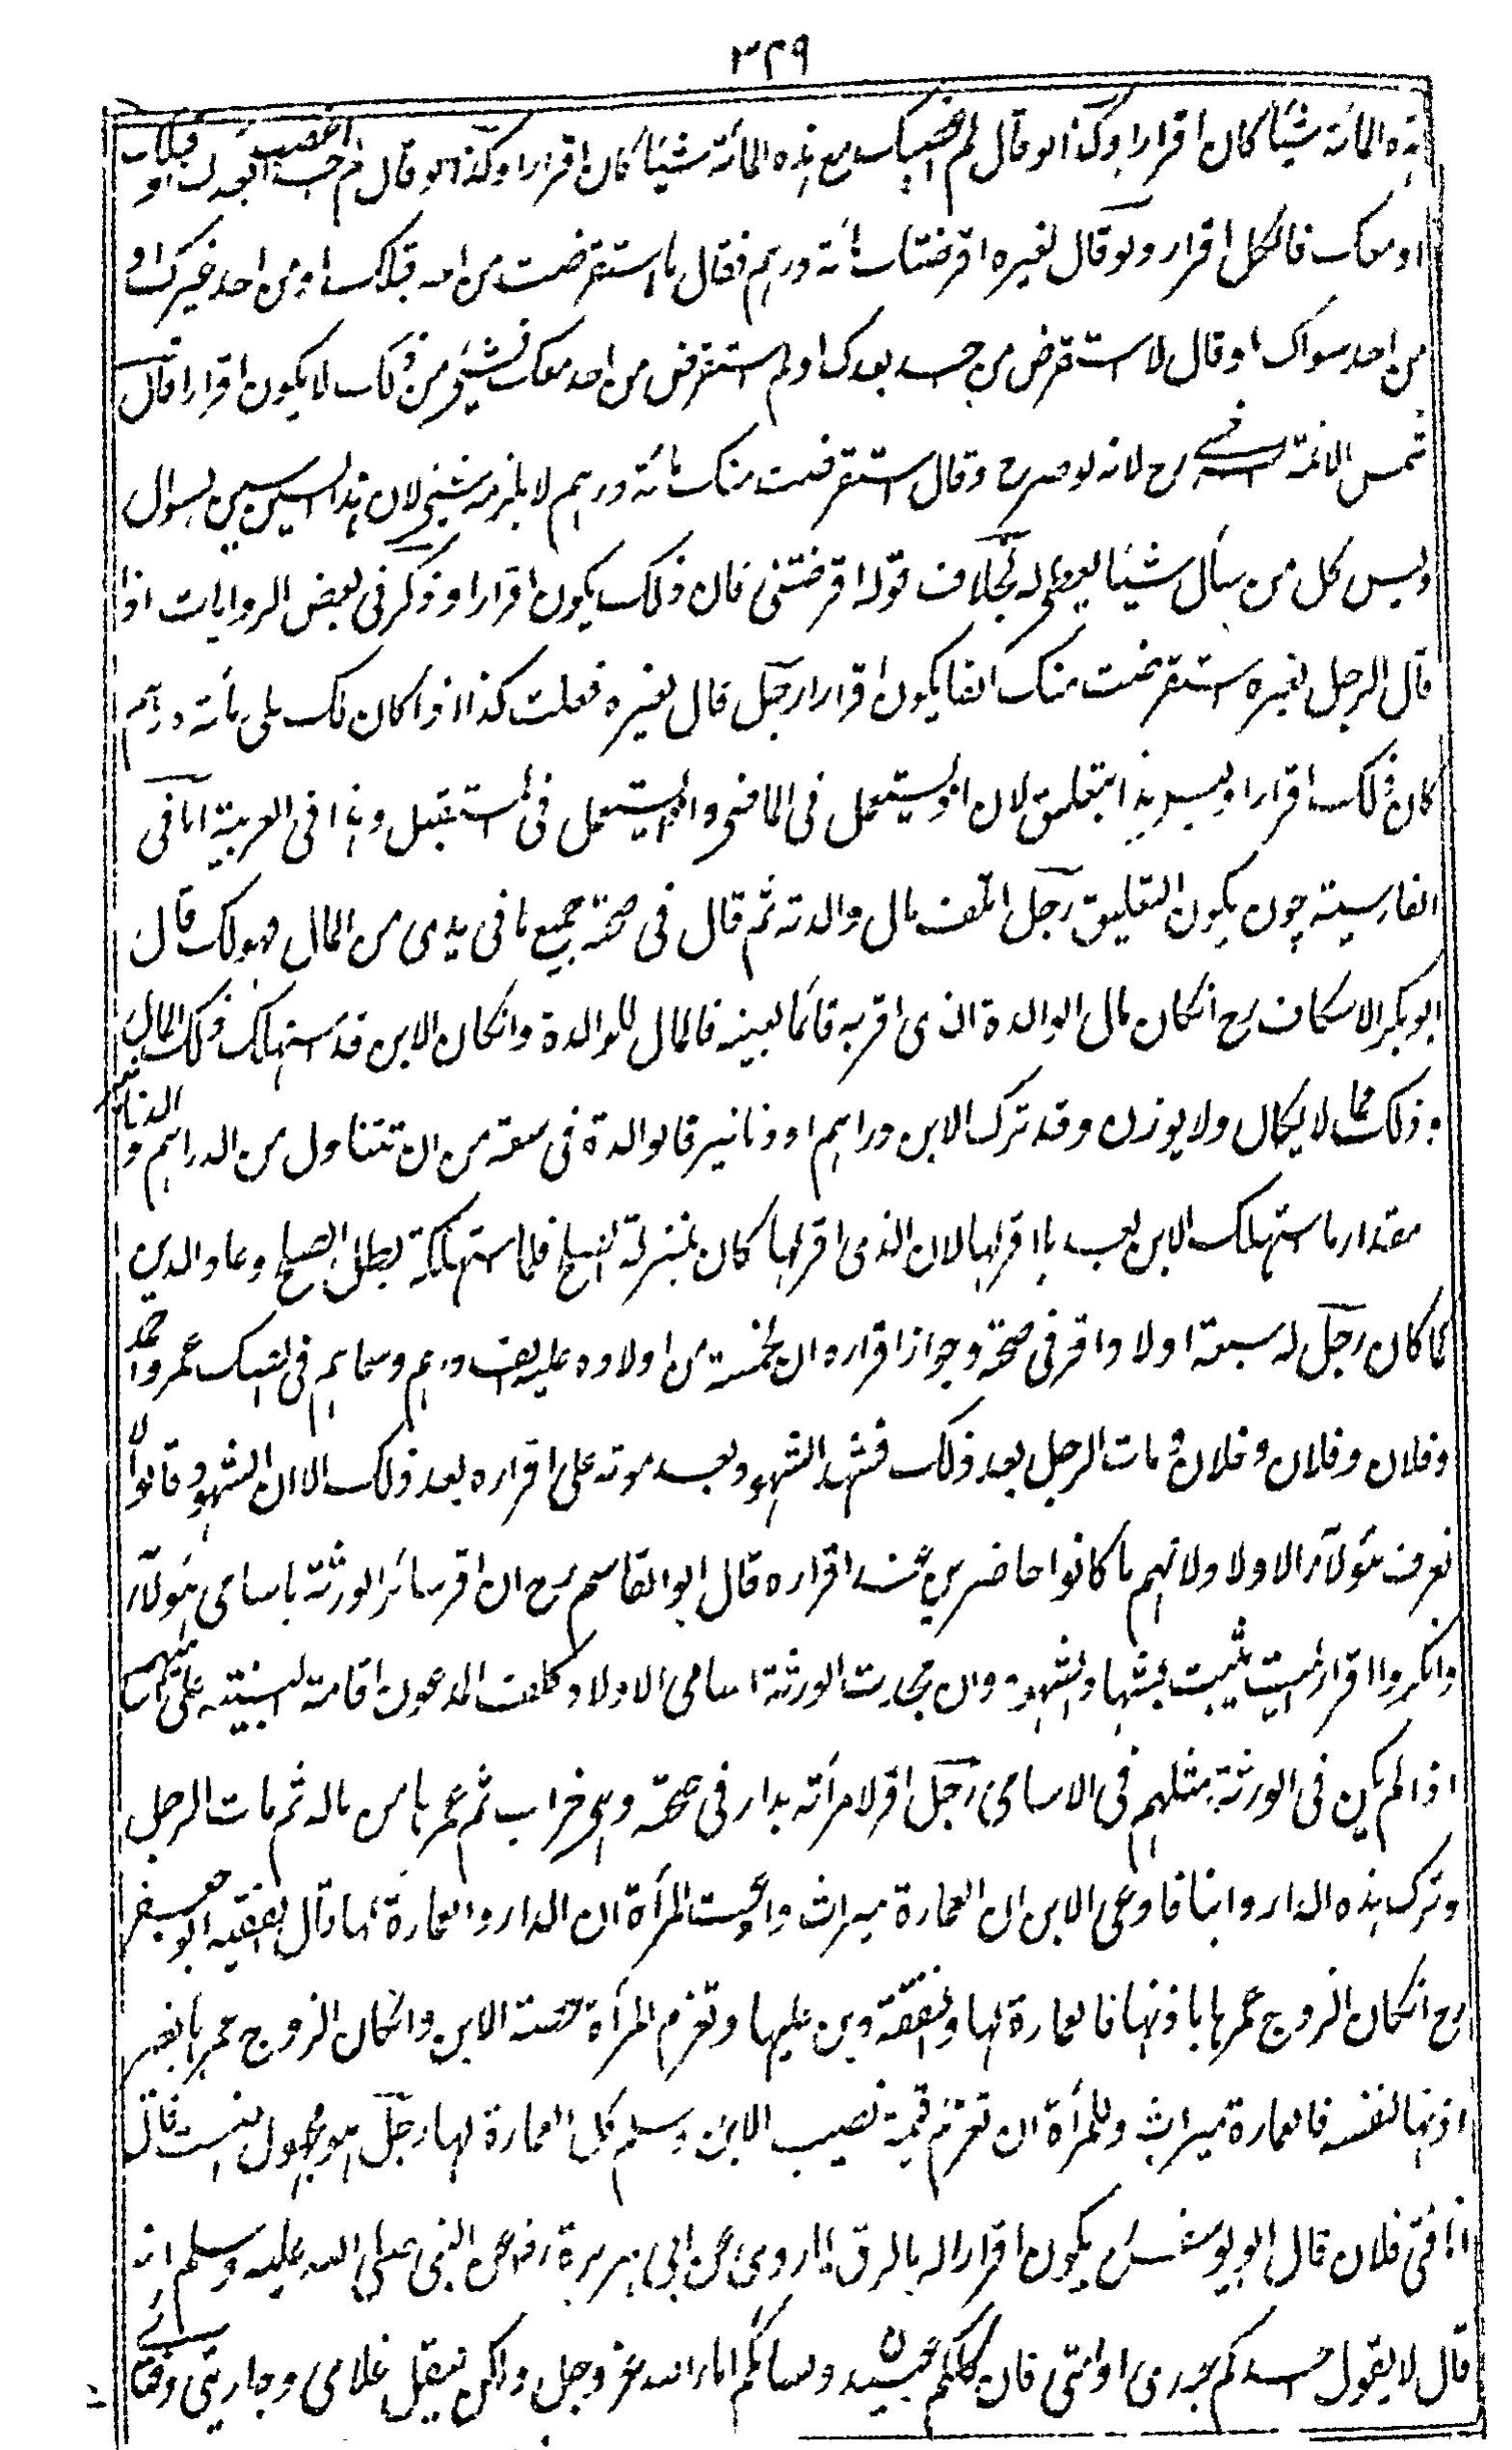 ٣٢٩
هذه المائة شيئا كان اقرارا وكذا لو قال لم اغصبك مع هذه المائة شيئا كان اقرارا وكذا لو قال لم اغصب احدا بعدك او قبلك
او معك فالكل اقرار ولو قال لغيره اقرضتك مائة درهم فقال ما استقرضت من احد قبلك او من احد غيرك او
من احد سواك او قال لا استقرض من احد بعدك او لم استقرض من احد معك فشيء من ذلك لا يكون اقرارا قال
شمس الائمة السرخسي رح لانه لو صرح وقال استقرضت منك مائة درهم لا يلزمه شيء لان هذا السين سين سوال
وليس كل من سأل شيئا يعطى له بخلاف قوله اقرضتني فان ذلك يكون اقرارا وذكر في بعض الروايات اذا
قال الرجل لغيره استقرضت منك الفا يكون اقرارا رجل قال لغيره فعلت كذا اذا كان لك علي مائة درهم
كان ذلك اقرارا وليس هذا بتعليق لان اذ يستعمل في الماضي واذا يستعمل في المستقبل وهذا في العربية اما في
الفارسية چون يكون التعليق رجل اتلف مال والدته ثم قال في صحته جميع ما في يدي من المال فهو لك قال
ابو بكر الاسكاف رح انكان مال الوالدة الذي اقر به قائما بعينه فالمال للوالدة وانكان الابن قد استهلك ذلك المال
وذلك مما لا يكال ولا يوزن وقد ترك الابن دراهم او دنانير فالوالدة في سعة من ان تتناول من الدراهم و الدنانير
مقدار ما استهلك الابن بعد ما اقر لها لان الذي اقر لها كان بمنزلة الصلح فلما استهلكه بطل الصلح وعاد الدين
كما كان رجل له سبعة اولاد اقر في صحته وجواز اقراره ان لخمسة من اولاده عليه الف درهم وسماهم في الصك عمرو احمد
وفلان وفلان وفلان ثم مات الرجل بعد ذلك فشهد الشهود بعد موته على اقراره بعد ذلك الا ان الشهود قالوا لا
نعرف هؤلاء الاولاد لانهم ما كانوا حاضرين عند اقراره قال ابو القاسم رح ان اقر سائر الورثة باسامي هؤلاء
وانكروا اقرار الميت يثبت بشهادة الشهود وان جحدت الورثة اسامي الاولاد كلف المدعون اقامة البينة على اسمائهم
اذا لم يكن في الورثة مثلهم في الاسامي رجل اقر لامرأته بدار في صحته وهي خراب ثم عمرها من ماله ثم مات الرجل
وترك هذه الدار وابنا فادعى الابن ان العمارة ميراث وادعت المرأة ان الدار والعمارة لها قال الفقيه ابو جعفر
رح انكان الزوج عمرها باذنها فالعمارة لها والنفقة دين عليها وتغرم المرأة حصة الابن وانكان الزوج عمرها بغير
اذنها لنفسه فالعمارة ميراث وللمرأة ان تغرم قيمة نصيب الابن وسلم كل العمارة لها رجل هو مجهول النسب قال
انا فتى فلان قال ابو يوسف رح يكون اقرارا له بالرق لما روي عن ابي هريرة رض عن النبي صلى الله عليه وسلم انه
قال لا يقول احدكم عبدي او امتي فان كلكم عبيد ونساءكم اماء الله عز وجل ولكن ليقل غلامي وجاريتي وفتاي